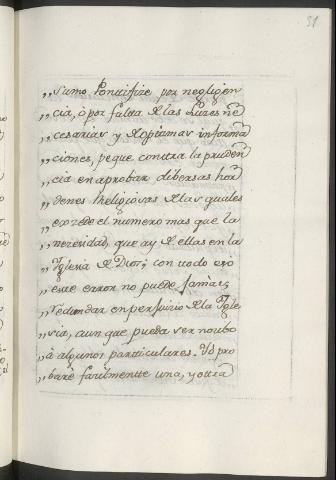 31
,,Sumo Pontifize por negligen
,,cia, ò por falta de las Luzes ne
,,cesarias y de optimas informa
,,ciones, peque contra la pruden
,,cia en aprobar dibersas hor
,,denes Religiosas de las quales
,,exzede el numero mas que la
,,nezesidad, que ay de ellas en la
,,Iglesia de Dios; con todo eso
,,este error no puede Jamàs,
,,redundar en perjuizio de la Igle
,,sia, aun que pueda ser nozibo
,,à algunos particulares. Yò pro
,,barè fazilmentte una, y ottra